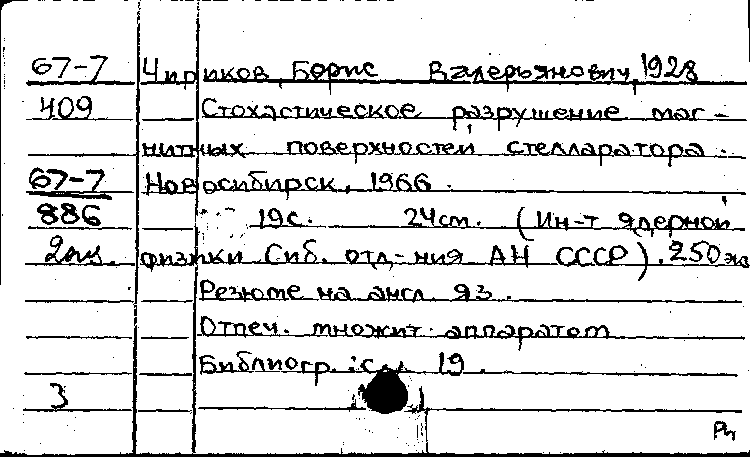 67-7 Чириков, Борис Валерьянович, 1928
409 Стохастическое разрушение маг-
нитных поверхностей стелларатора.
67-7 Новосибирск, 1966.
886 19 с. 24 см. (Ин-т ядерной
2 физики Сиб. отд-ния АН СССР). 250 эк
Резюме на англ. яз.
Отпеч. множит. аппаратом
Библиогр.: с. 19.
3